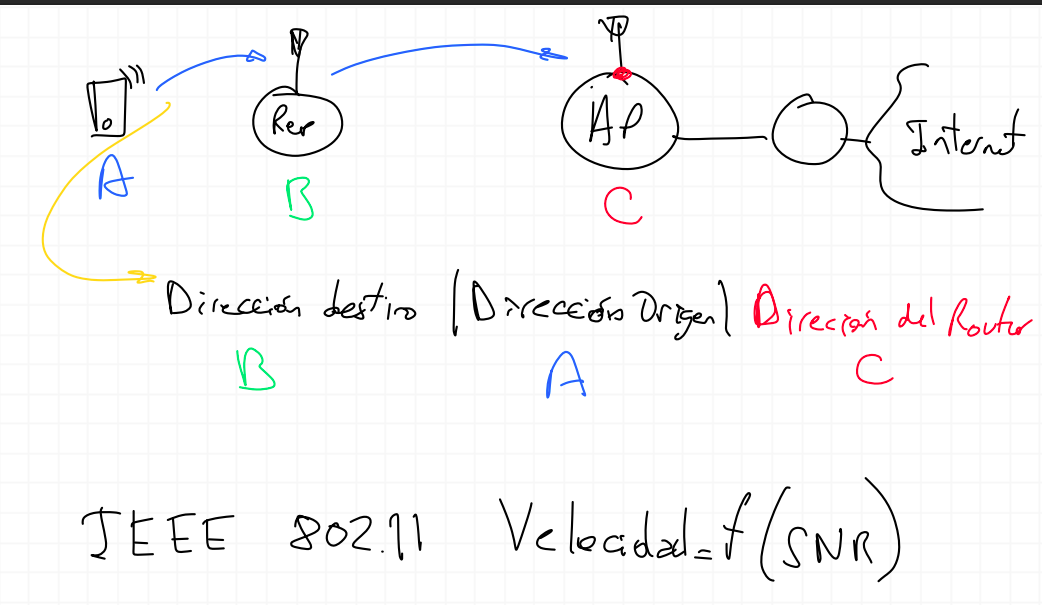 Rep
AP
Internet
A
B
C
Dirección destino | Dirección Origen | Dirección del Router
B
A
C
IEEE 802.11 Velocidad = f(SNR)